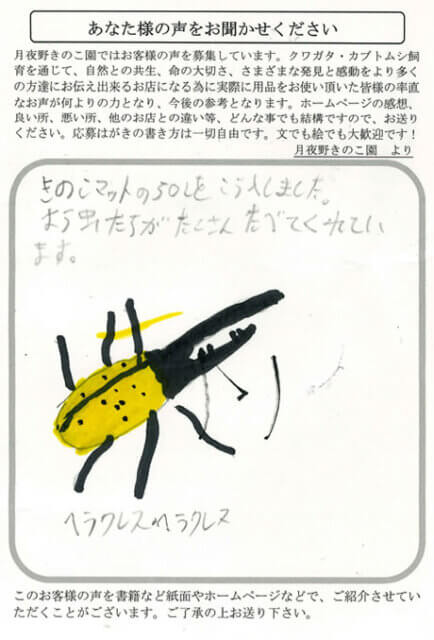 あなた様の声をお聞かせください
月夜野きのこ園ではお客様の声を募集しています。クワガタ・カブトムシ飼
育を通じて、自然との共生、命の大切さ、さまざまな発見と感動をより多く
の方達にお伝え出来るお店になる為に実際に用品をお使い頂いた皆様の率直
なお声が何よりの力となり、今後の参考となります。ホームページの感想、
良い所、悪い所、他のお店との違い等、どんな事でも結構ですので、お送り
ください。応募はがきの書き方は一切自由です。文でも絵でも大歓迎です！
月夜野きのこ園　より
きのこマットの50Lをこう入しました。
よう虫たちがたくさんたべてくれてい
ます。
ヘラクレスヘラクレス
このお客様の声を書籍など紙面やホームページなどで、ご紹介させてい
ただくことがございます。ご了承の上お送り下さい。